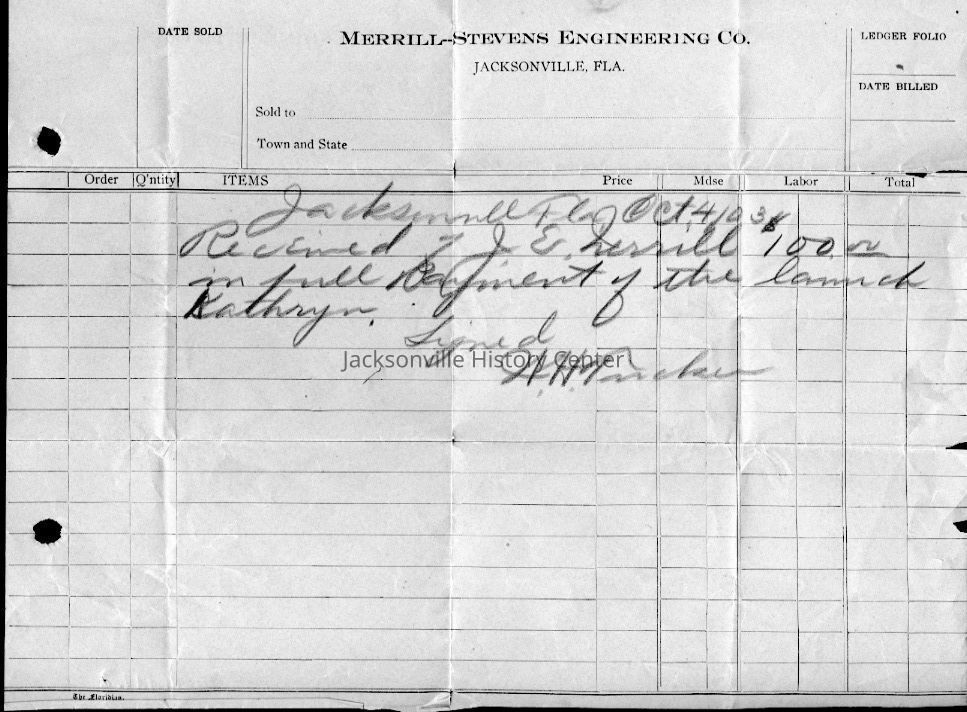 DATE SOLD
MERRILL--STEVENS ENGINEERING CO.
JACKSONVILLE, FLA.
LEDGER FOLIO
DATE BILLED
Sold to
Town and State
Order Q'ntity ITEMS Price Mdse Labor Total
Jacksonville Fla Oct 4
Received of J. E. Merrill $100.00
in full payment of the launch
Kathryn.
Signed
Jacksonville History Center
The Floridian.